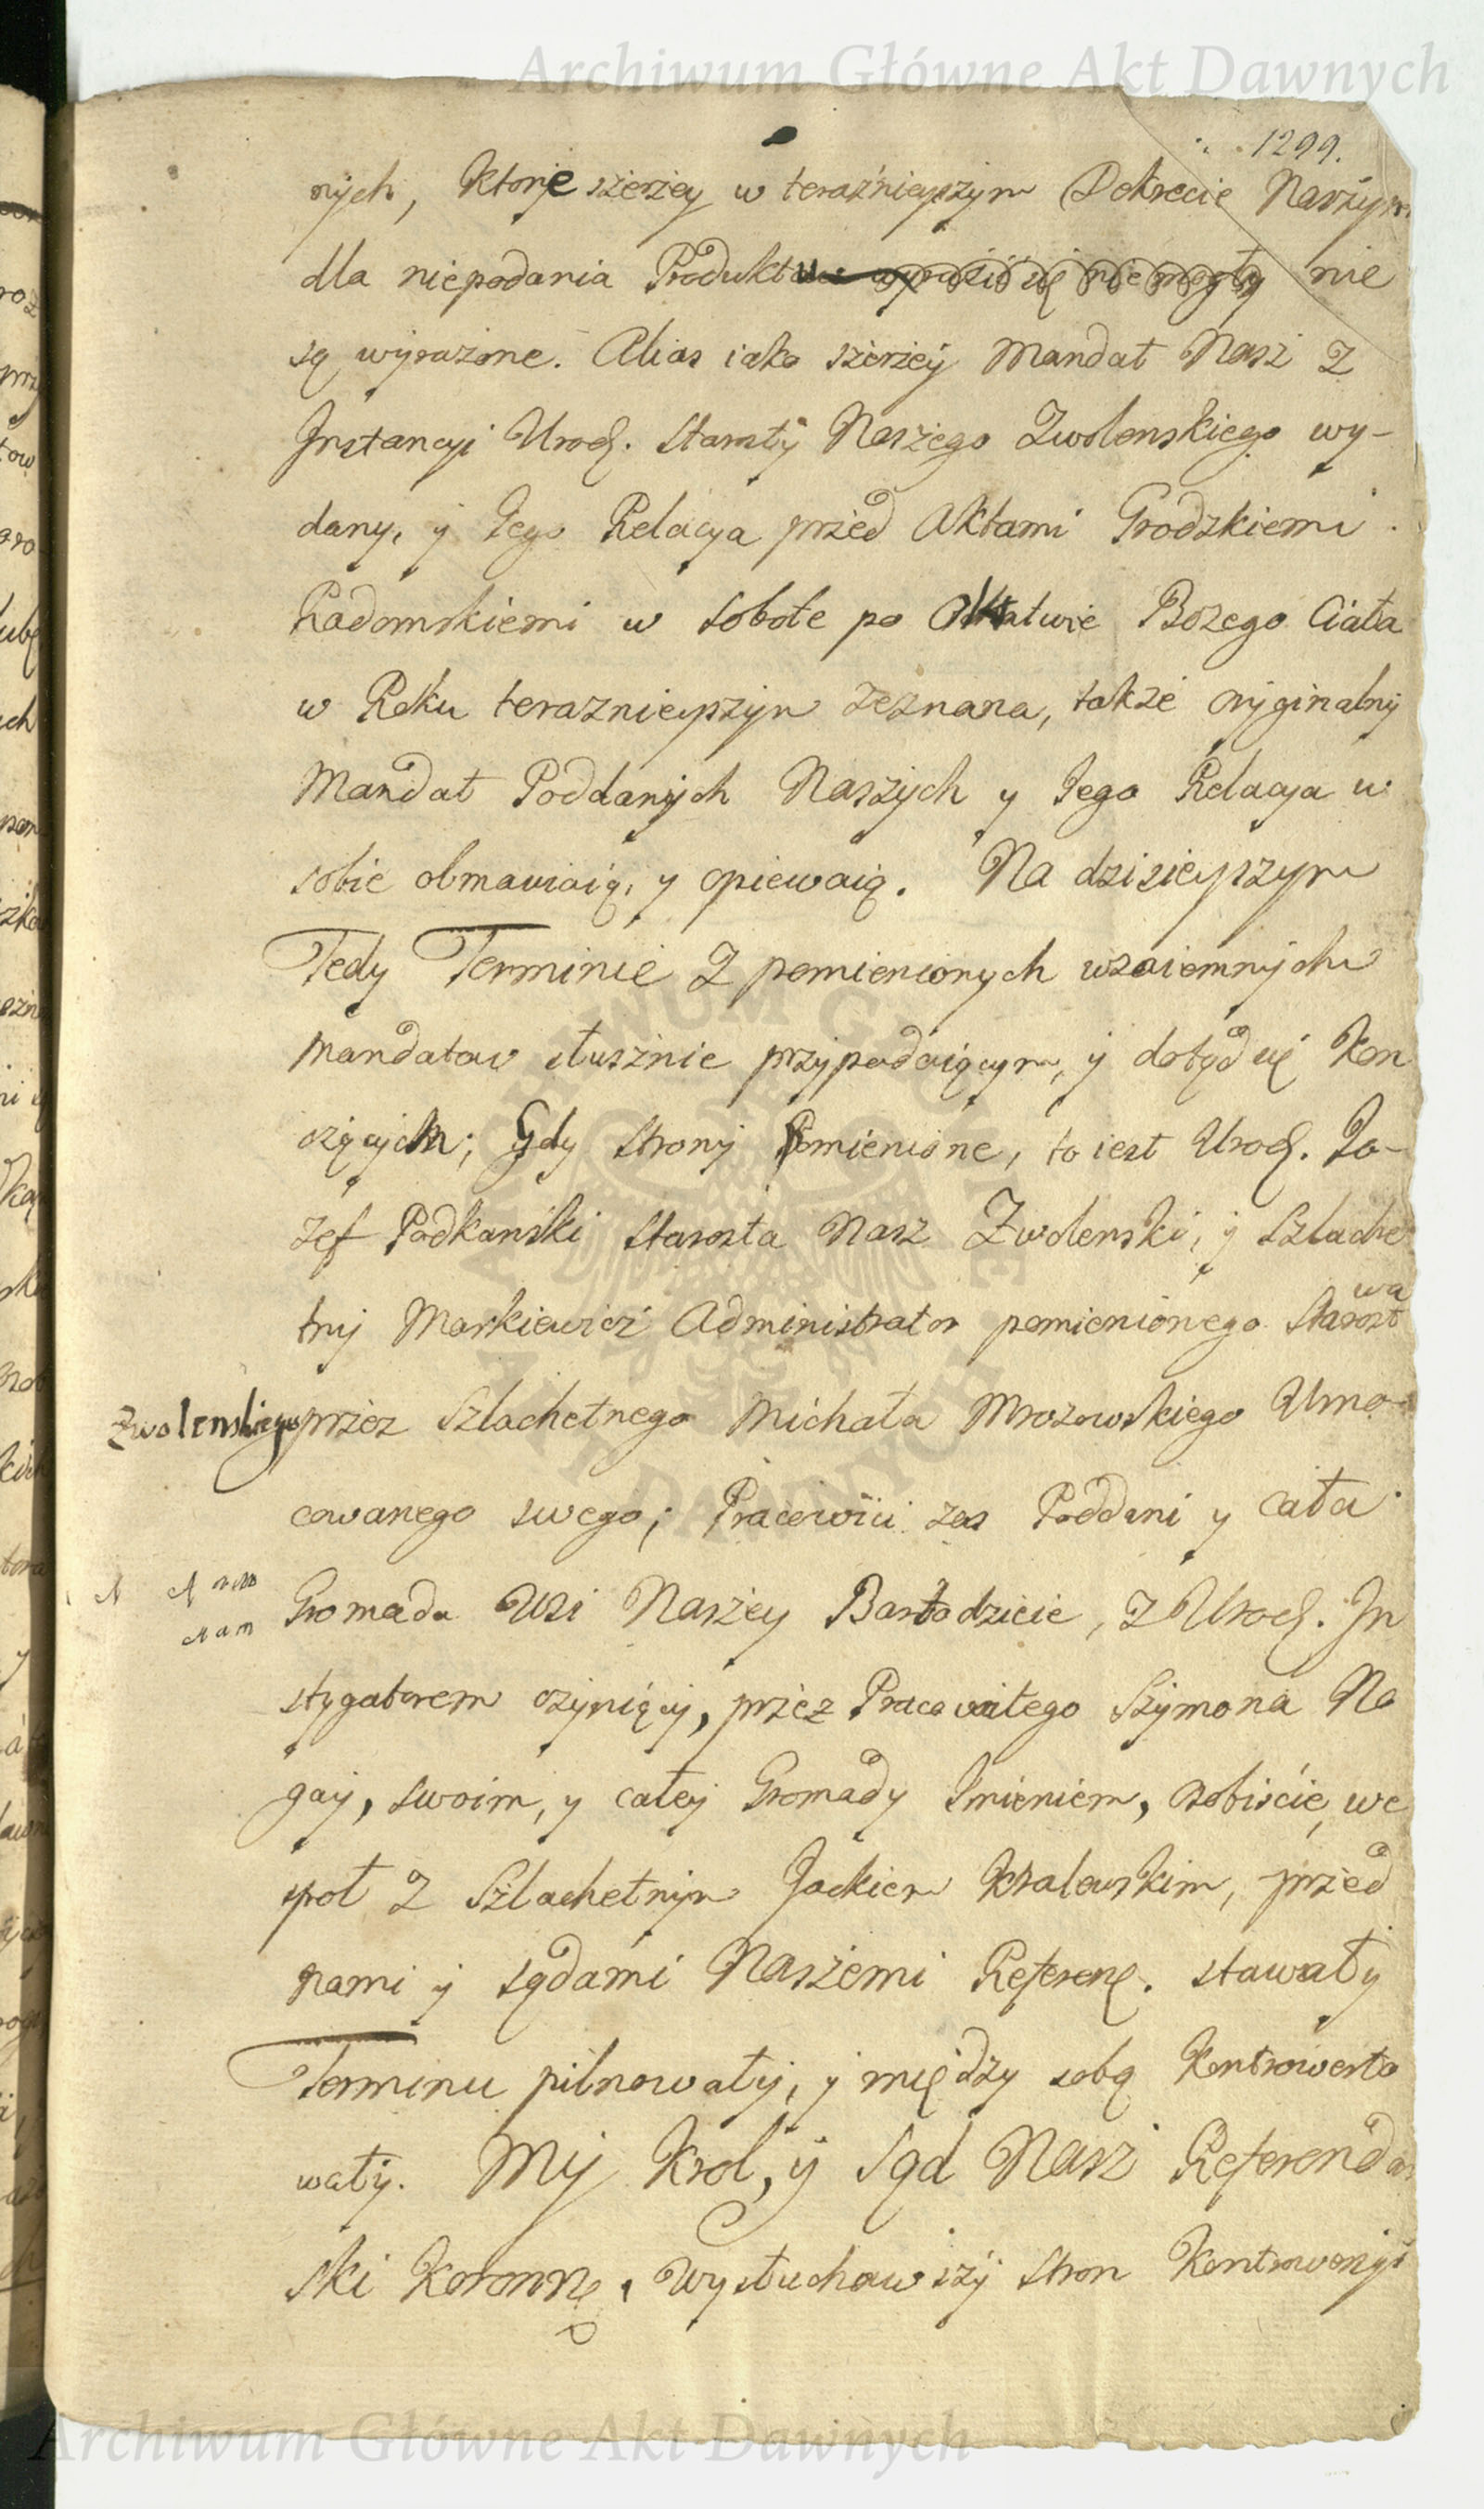 Archiwum Główne Akt Dawnych
1299.
nych, ktore szerzey w teraznieyszym Dekrecie Naszym
dla niepodania Produktu wyrazić się nie mogły nie
są wyrazone. Alias iako szerzey Mandat Nasz z
Instancyi Urodz. Starosty Naszego Zwolenskiego wy-
dany, y Iego Relacya przed Aktami Grodzkiemi
Radomskiemi w Sobote po Oktawie Bozego Ciała
w Roku teraznieyszym zeznana, takze oryginalny
Mandat Poddanych Naszych y Iego Relacya w
sobie obmawiaią, y opiewaią. Na dzisieyszym
Tedy Terminie z pomienionych wzaiemnych
Mandatow słusznie przypadaiącym, y dotąd się kon
czących; Gdy Strony Pomienione, to iest Urodz. Jo-
zef Podkanski Starosta Nasz Zwolenski, y Szlache
tny Markiewicz Administrator pomienionego Starost
wa
Zwolenskiego przez Szlachetnego Michała Mrozowskiego Umo-
cowanego swego; Pracowici zas Poddani y cała
Gromada Wsi Naszey Bartodzieie, z Urodz. In
stygatorem czyniący, przez Pracowitego Szymona Na
gay, swoim, y całey Gromady Imieniem, osobiście, we
społ z Szlachetnym Jackiem Kralewskim, przed
nami y Sądami Naszemi Referen. stawały
Terminu pilnowały, y między sobą kontrowerto
wały. My Krol, y Sąd Nasz Referendar
ski Koronny, Wysłuchawszy Stron Kontrowersyi
Archiwum Główne Akt Dawnych
ARCHIWUM GŁÓWNE AKT DAWNYCH